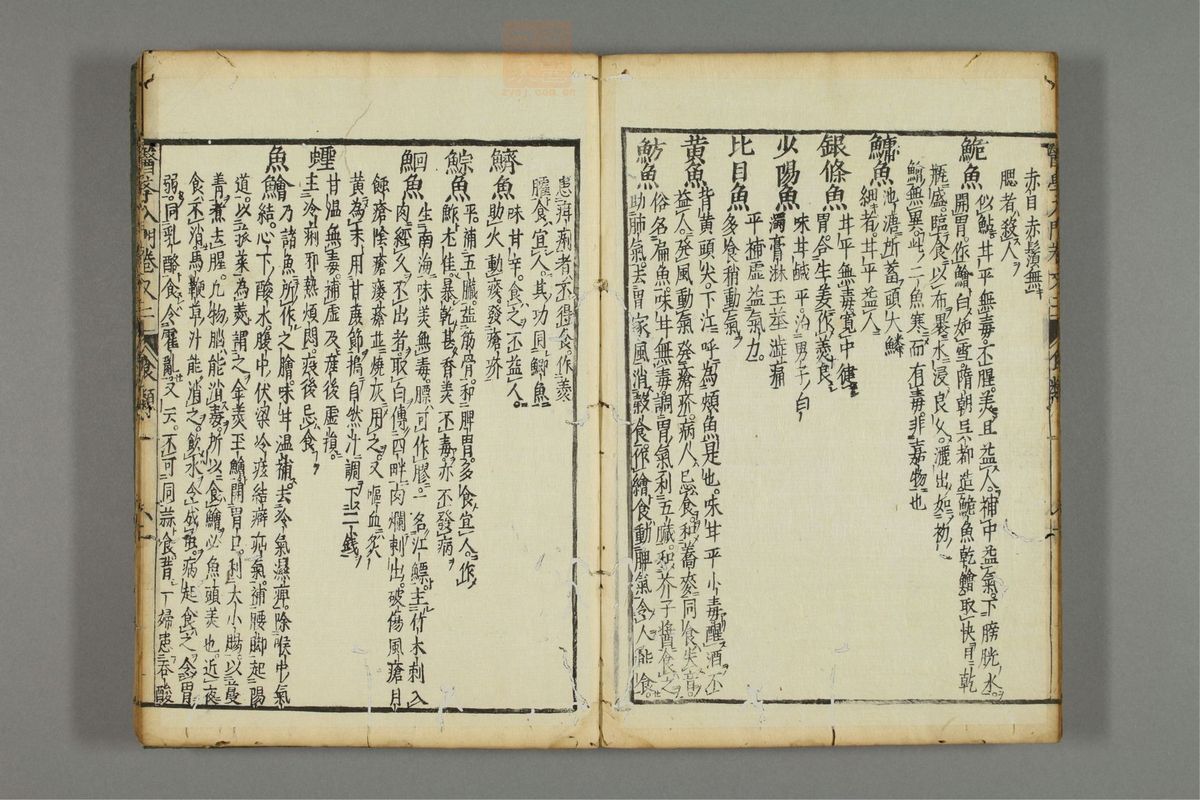 赤目赤鬚無
腮者殺人
鮠魚 似鯰甘平無毒不腥美且益人補中益氣下膀胱水
開胃作鱠白如雪隋朝吳都造鮠魚乾鱠取快日乾
瓶盛臨食以布裹水浸良久灑出如初
鱅魚 池溏所蓄頭大鱗
細者甘平益人
銀條魚 甘平無毒寬中健
胃合生姜作羹良
少陽魚 味甘鹹平治男子白
濁膏淋玉莖澁痛
比目魚 平補虛益氣力
多食稍動氣
黃魚 背黃頭尖下江呼為頰魚是也味甘平小毒醒酒不
益人發風動氣發瘡疥病人忌食和蕎麥同食失音
魴魚 俗名扁魚味甘無毒調胃氣利五臟和芥子醬食之
助肺氣去胃家風消穀食作鱠食動脾氣令人能食
患疳痢者不得食作羹
臛食宜人其功同鯽魚
鱭魚 味甘辛食之不益人
助火動痰發瘡疥
鯮魚 平補五臟益筋骨和脾胃多食宜人作
鮓尤佳暴乾甚香美不毒亦不發病
鮰魚 生南海味美無毒膘可作膠一名江鰾主竹木刺入
肉經久不出者取白傅四畔肉爛刺出破傷風瘡月
蝕瘡陰瘡瘻瘡並燒灰用之又嘔血炙
黃為末用甘蔗節搗自然汁調下二錢
蟶 甘溫無毒補虛及產後虛損
主冷痢邪熱煩悶疫後忌食
魚鱠 乃諸魚所作之膾味甘溫補去冷氣濕痺除喉中氣
結心下酸水腹中伏梁冷痃結癖疝氣補腰脚起陽
道以菰菜為羹謂之金羹玉鱠開胃口利大小腸以蔓
青煮去腥凡物腦能消毒所以食鱠必魚頭羹也近夜
食不消馬鞭草汁能消之飲水令成虫病起食之令胃
弱同乳酪食令霍亂又云不可同蒜食昔一婦患吞酸